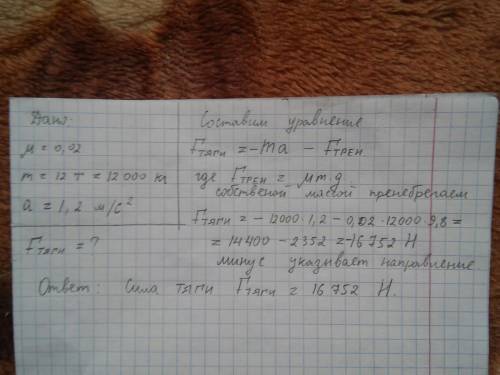 Дано:
μ = 0,02
m = 12 т = 12 000 кг
a = 1,2 м/с²
Fтяги = ?
Составим уравнение
Fтяги = -ma - Fтрен
где Fтрен = μm.g.
собственой массой пренебрегаем
Fтяги = - 12000·1,2 - 0,02·12000·9,8 =
= 14 400 - 2352 = -16 752 Н
минус указывает направление
Ответ: Сила тяги Fтяги = 16 752 Н.